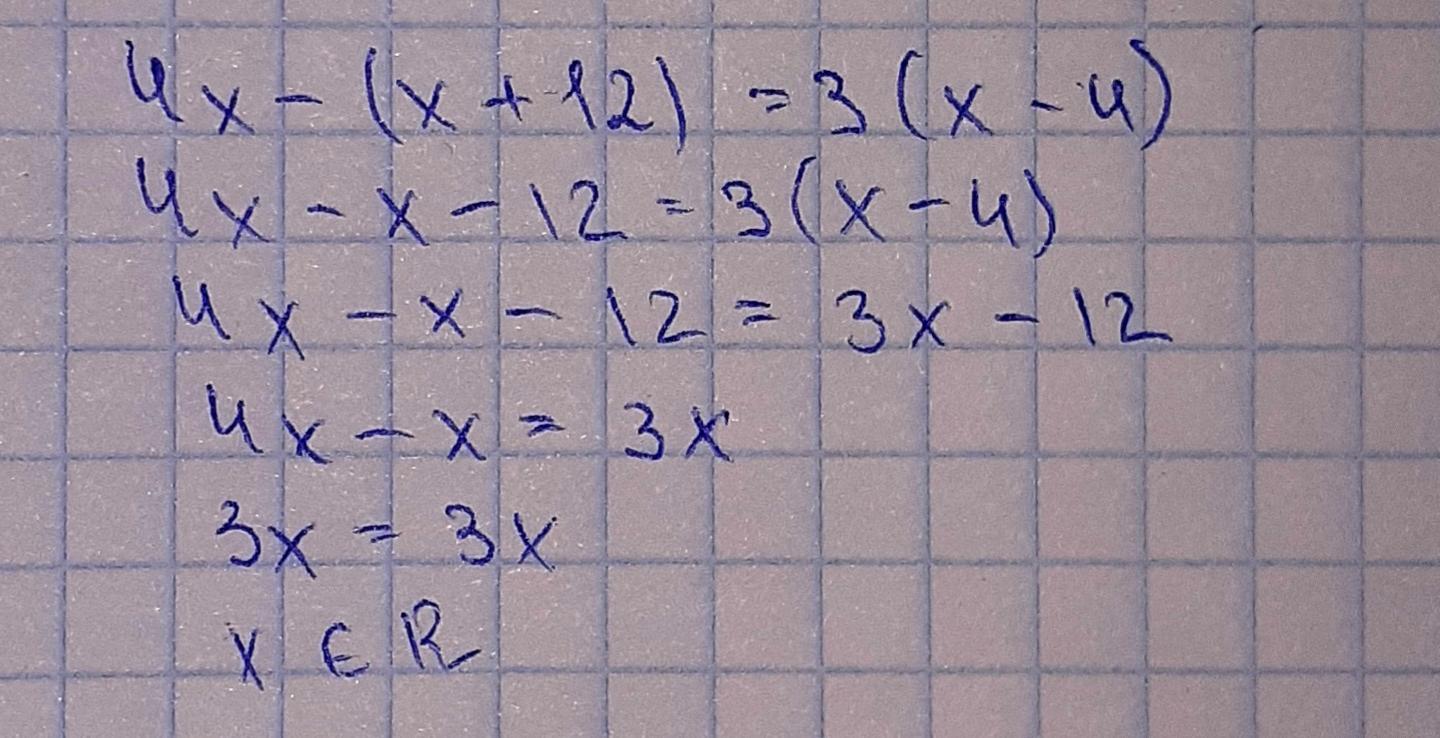 4x - (x + 12) = 3(x - 4)
4x - x - 12 = 3(x - 4)
4x - x - 12 = 3x - 12
4x - x = 3x
3x = 3x
x ∈ R